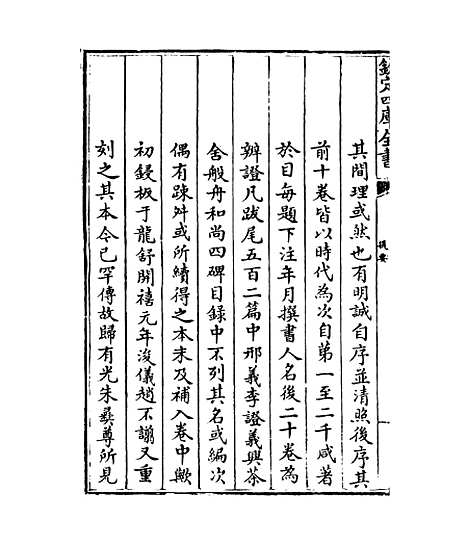 欽定四庫全書
提要
其間理或然也有明誠自序並清照後序其
前十卷皆以時代為次自第一至二千咸著
於目每題下注年月撰書人名後二十卷為
辨證凡跋尾五百二篇中邢義李證義興茶
舍般舟和尚四碑目錄中不列其名或編次
偶有疎舛或所續得之本未及補入卷中歟
初鋟板于龍舒開禧元年浚儀趙不譾又重
刻之其本今已罕傳故歸有光朱彝尊所見